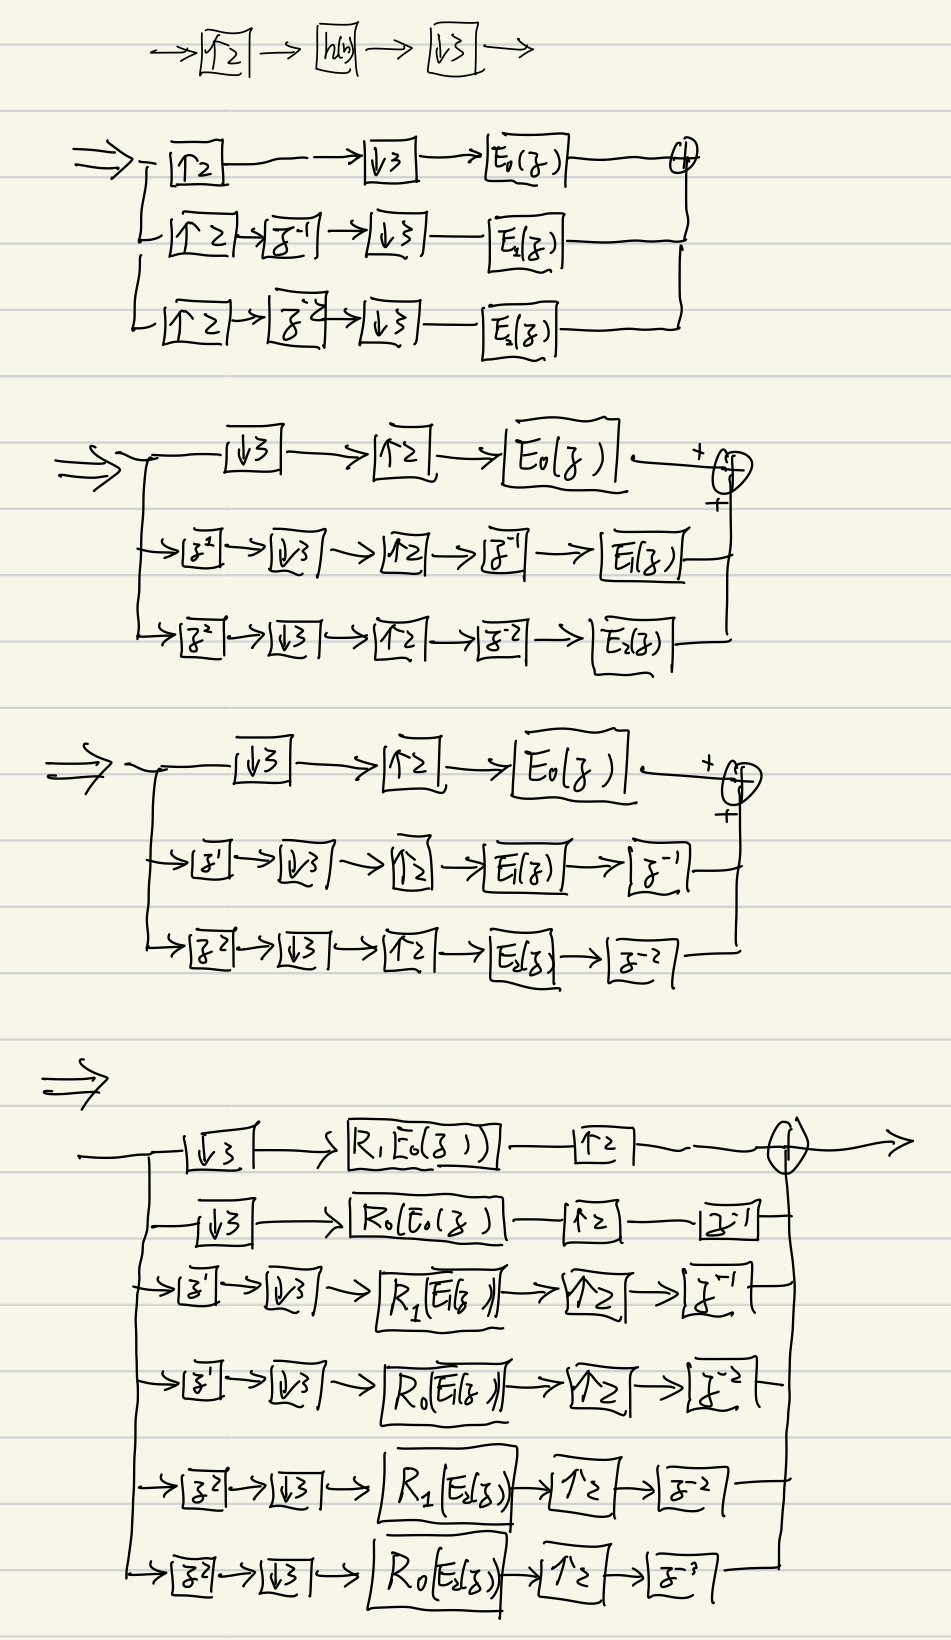 → ↑2 → h(n) → ↓3 →
⇒ ↑2 → ↓3 → E₀(z) ⊕
↑2 → z⁻¹ → ↓3 E₁(z)
↑2 → z⁻² → ↓3 E₂(z)
⇒ ↓3 → ↑2 → E₀(z) + ⊕
+
→ z¹ → ↓3 → ↑2 → z⁻¹ → E₁(z)
→ z² → ↓3 → ↑2 → z⁻² → E₂(z)
⇒ ↓3 → ↑2 → E₀(z) + ⊕
+
→ z¹ → ↓3 → ↑2 → E₁(z) → z⁻¹
→ z² → ↓3 → ↑2 → E₂(z) → z⁻²
⇒
↓3 → R₁E₀(z)) ↑2 ⊕ →
↓3 → R₀(E₀(z) ↑2 z⁻¹
→ z¹ → ↓3 → R₁(E₁(z)) → ↑2 → z⁻¹
→ z¹ → ↓3 → R₀(E₁(z)) → ↑2 → z⁻²
→ z² → ↓3 → R₁(E₂(z)) → ↑2 → z⁻²
→ z² → ↓3 → R₀(E₂(z)) → ↑2 → z⁻³